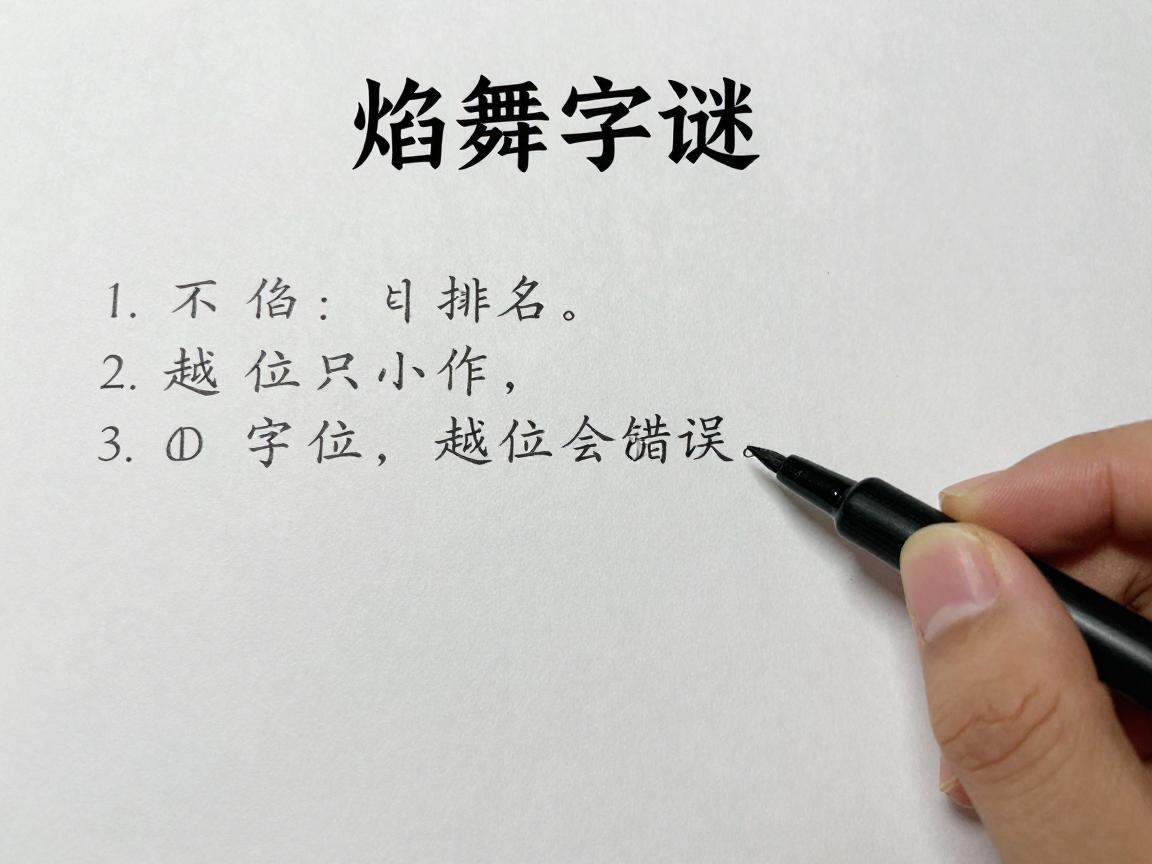 焰舞字谜
1. 不 㑇：排名。
2. 越 位只小作，
3. ① 字位，越位会错误。